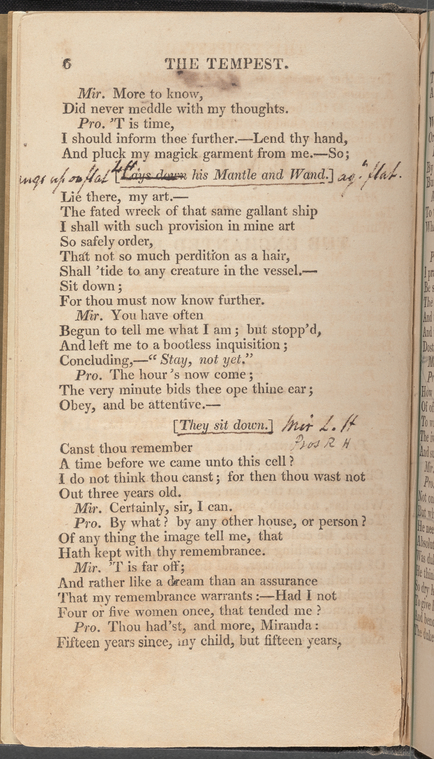 6 THE TEMPEST.
Mir. More to know,
Did never meddle with my thoughts.
Pro. 'T is time,
I should inform thee further.—Lend thy hand,
And pluck my magick garment from me.—So;
up on flat [Lays down his Mantle and Wand.] ag: flat.
Lie there, my art.—
The fated wreck of that same gallant ship
I shall with such provision in mine art
So safely order,
That not so much perdition as a hair,
Shall 'tide to any creature in the vessel.—
Sit down;
For thou must now know further.
Mir. You have often
Begun to tell me what I am; but stopp'd,
And left me to a bootless inquisition;
Concluding,—"Stay, not yet."
Pro. The hour's now come;
The very minute bids thee ope thine ear;
Obey, and be attentive.—
[They sit down.] Mir L. H
Pros R H
Canst thou remember
A time before we came unto this cell?
I do not think thou canst; for then thou wast not
Out three years old.
Mir. Certainly, sir, I can.
Pro. By what? by any other house, or person?
Of any thing the image tell me, that
Hath kept with thy remembrance.
Mir. 'T is far off;
And rather like a dream than an assurance
That my remembrance warrants:—Had I not
Four or five women once, that tended me?
Pro. Thou had'st, and more, Miranda:
Fifteen years since, my child, but fifteen years,